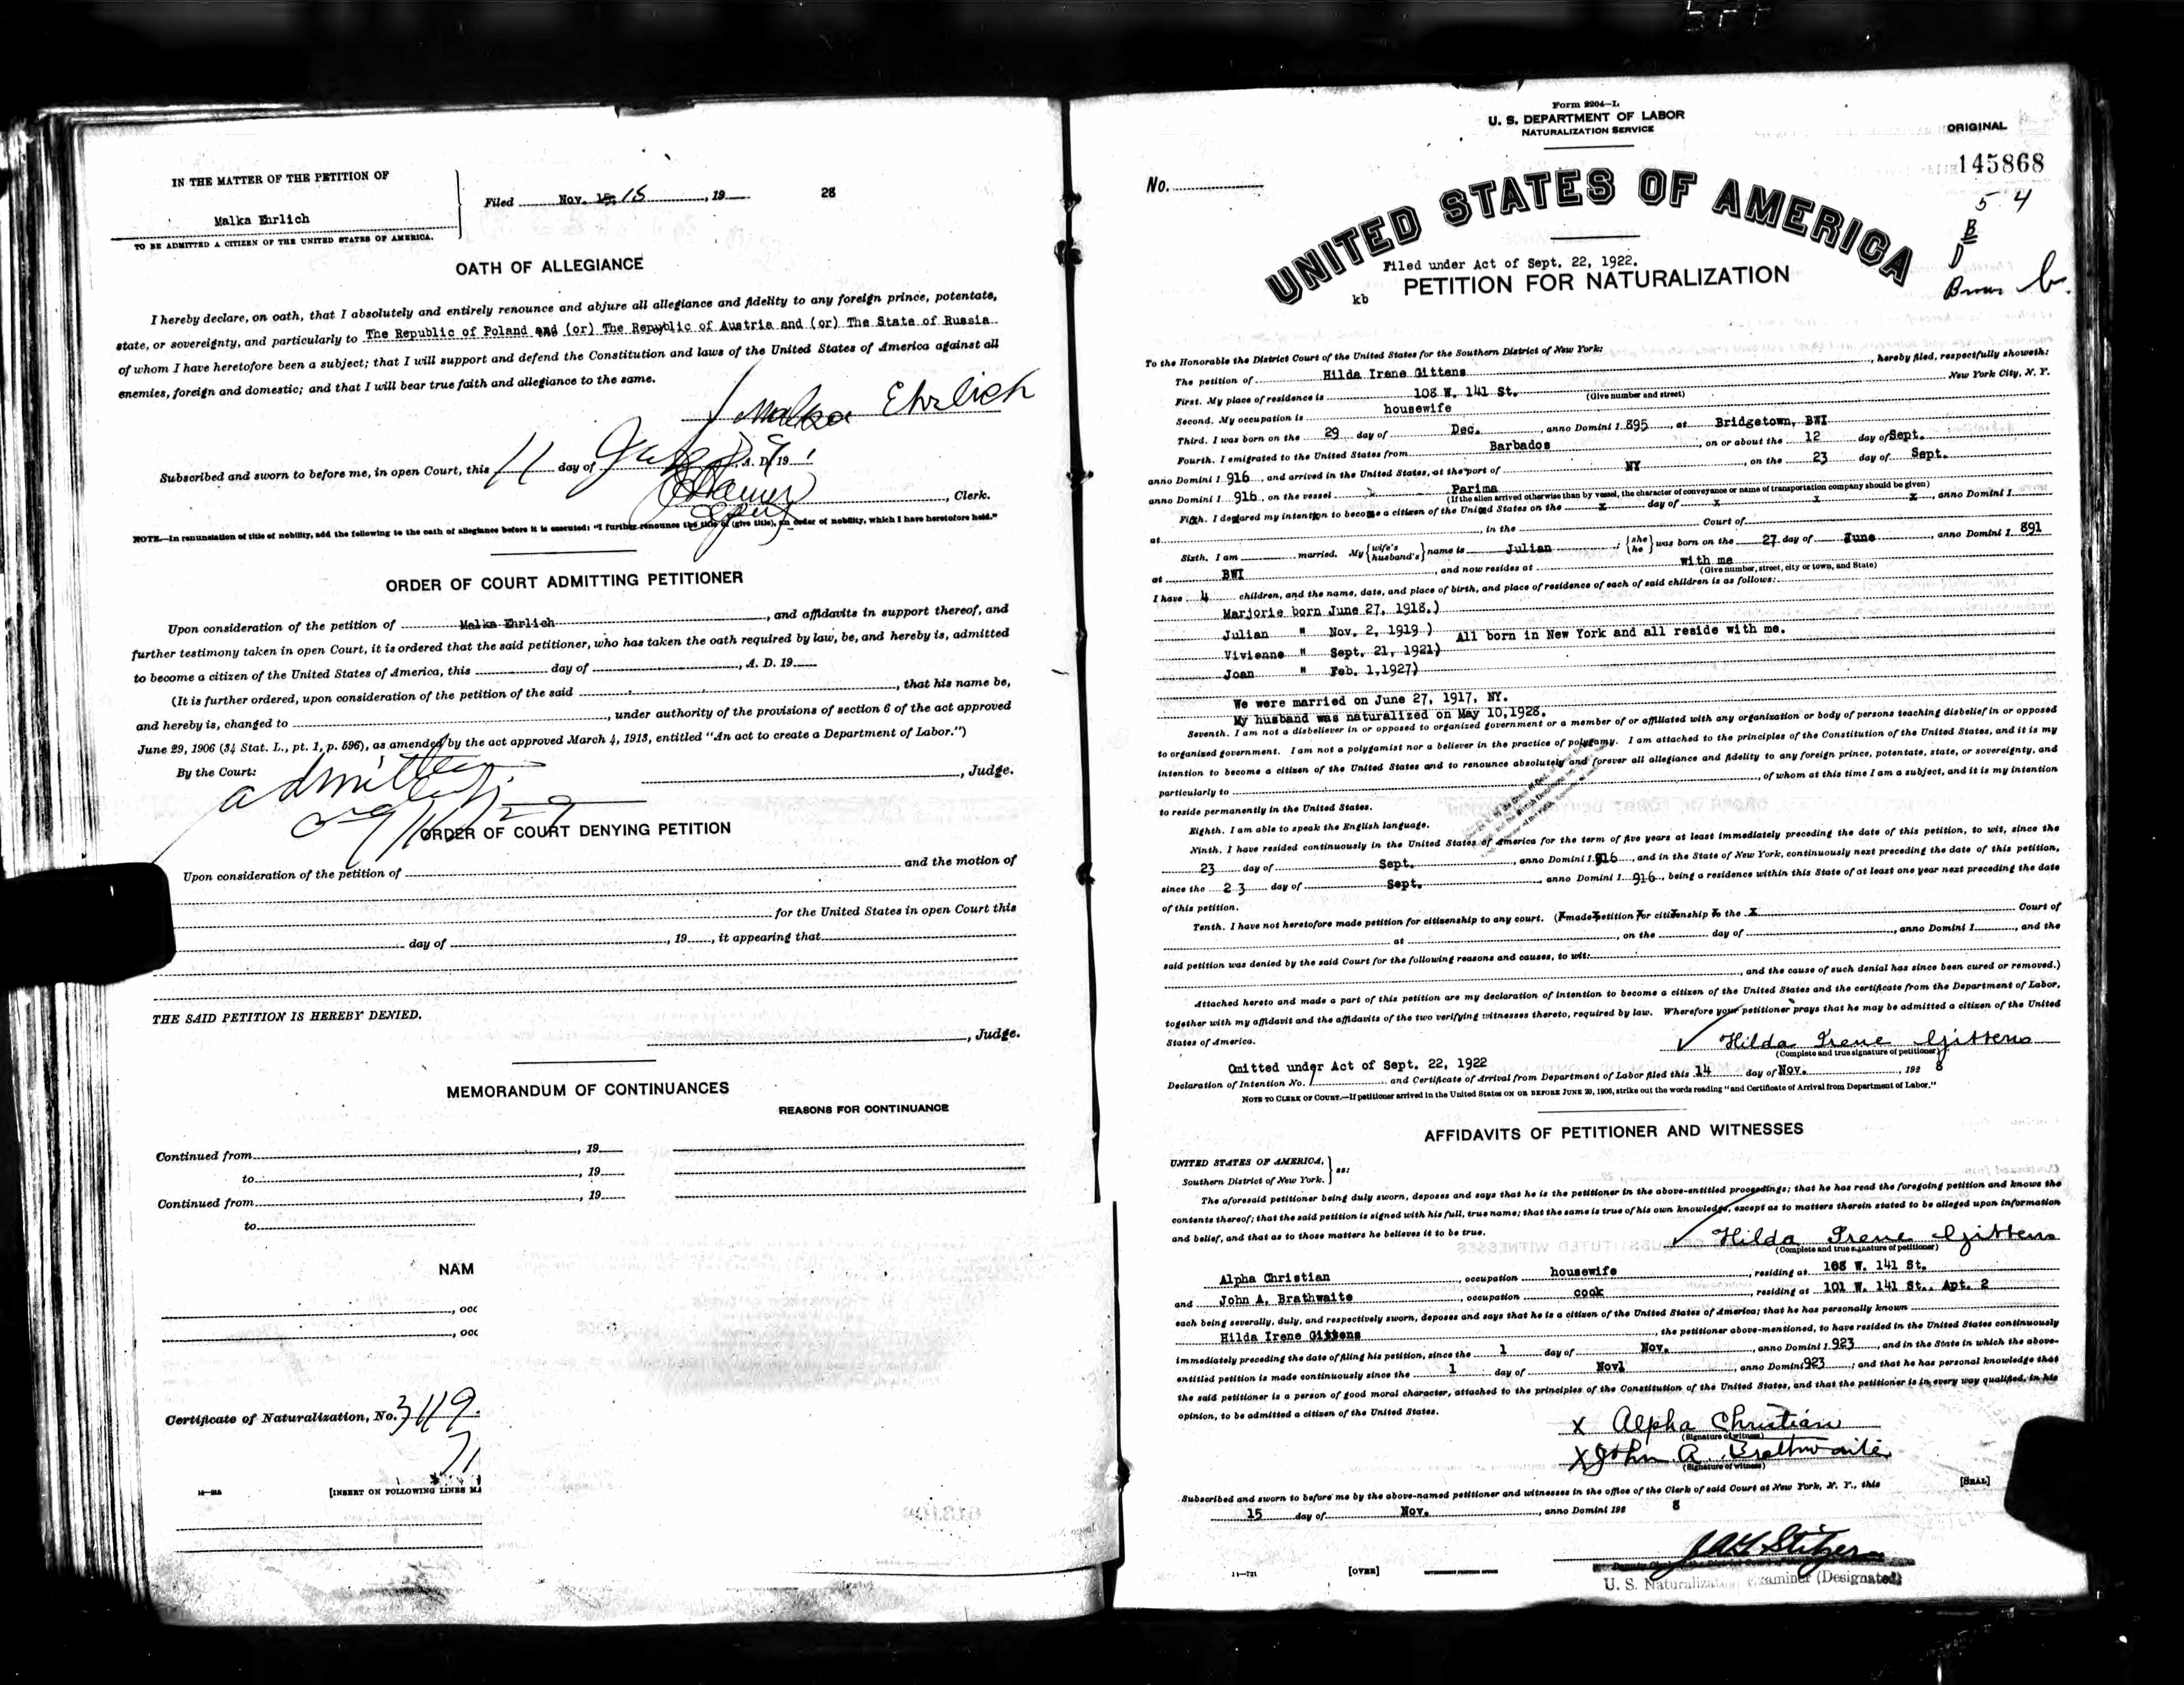 IN THE MATTER OF THE PETITION OF
Malka Ehrlich
TO BE ADMITTED A CITIZEN OF THE UNITED STATES OF AMERICA.
Filed Nov. 15, 19 28
OATH OF ALLEGIANCE
I hereby declare, on oath, that I absolutely and entirely renounce and abjure all allegiance and fidelity to any foreign prince, potentate,
state, or sovereignty, and particularly to The Republic of Poland and (or) The Republic of Austria and (or) The State of Russia
of whom I have heretofore been a subject; that I will support and defend the Constitution and laws of the United States of America against all
enemies, foreign and domestic; and that I will bear true faith and allegiance to the same.
Malka Ehrlich
Subscribed and sworn to before me, in open Court, this 11 day of , A. D. 19
, Clerk.
NOTE.—In renunciation of title of nobility, add the following to the oath of allegiance before it is executed: "I further renounce the title of (give title), an order of nobility, which I have heretofore held."
ORDER OF COURT ADMITTING PETITIONER
Upon consideration of the petition of Malka Ehrlich, and affidavits in support thereof, and
further testimony taken in open Court, it is ordered that the said petitioner, who has taken the oath required by law, be, and hereby is, admitted
to become a citizen of the United States of America, this day of , A. D. 19
(It is further ordered, upon consideration of the petition of the said , that his name be,
and hereby is, changed to , under authority of the provisions of section 6 of the act approved
June 29, 1906 (34 Stat. L., pt. 1, p. 596), as amended by the act approved March 4, 1913, entitled "An act to create a Department of Labor.")
By the Court:
, Judge.
admitted
ORDER OF COURT DENYING PETITION
Upon consideration of the petition of and the motion of
for the United States in open Court this
day of , 19 , it appearing that
THE SAID PETITION IS HEREBY DENIED.
, Judge.
MEMORANDUM OF CONTINUANCES
REASONS FOR CONTINUANCE
Continued from , 19
to , 19
Continued from , 19
to
NAM
, occ
, occ
Certificate of Naturalization, No. 3119
[INSERT ON FOLLOWING LINES MA
Form 2204—L
U. S. DEPARTMENT OF LABOR
NATURALIZATION SERVICE
ORIGINAL
No.
145868
5 4
B
D
UNITED STATES OF AMERICA
Filed under Act of Sept. 22, 1922.
kb PETITION FOR NATURALIZATION
To the Honorable the District Court of the United States for the Southern District of New York:
The petition of Hilda Irene Gittens, hereby filed, respectfully showeth:
First. My place of residence is 108 W. 141 St. New York City, N. Y.
(Give number and street)
Second. My occupation is housewife
Third. I was born on the 29 day of Dec., anno Domini 1 895, at Bridgetown, BWI
Fourth. I emigrated to the United States from Barbados, on or about the 12 day of Sept.
anno Domini 1 916, and arrived in the United States, at the port of NY, on the 23 day of Sept.
anno Domini 1 916, on the vessel Parima
(If the alien arrived otherwise than by vessel, the character of conveyance or name of transportation company should be given)
Fifth. I declared my intention to become a citizen of the United States on the x day of x x, anno Domini 1
at , in the Court of
Sixth. I am married. My {wife's husband's} name is Julian; {she he} was born on the 27 day of June, anno Domini 1 891
at BWI, and now resides at with me
(Give number, street, city or town, and State)
I have 4 children, and the name, date, and place of birth, and place of residence of each of said children is as follows:
Marjorie born June 27, 1918.)
Julian " Nov. 2, 1919 )
Vivienne " Sept. 21, 1921) All born in New York and all reside with me.
Joan " Feb. 1,1927)
We were married on June 27, 1917, NY.
My husband was naturalized on May 10,1928.
Seventh. I am not a disbeliever in or opposed to organized government or a member of or affiliated with any organization or body of persons teaching disbelief in or opposed
to organized government. I am not a polygamist nor a believer in the practice of polygamy. I am attached to the principles of the Constitution of the United States, and it is my
intention to become a citizen of the United States and to renounce absolutely and forever all allegiance and fidelity to any foreign prince, potentate, state, or sovereignty, and
particularly to , of whom at this time I am a subject, and it is my intention
to reside permanently in the United States.
Eighth. I am able to speak the English language.
Ninth. I have resided continuously in the United States of America for the term of five years at least immediately preceding the date of this petition, to wit, since the
23 day of Sept., anno Domini 1 916, and in the State of New York, continuously next preceding the date of this petition,
since the 23 day of Sept., anno Domini 1 916, being a residence within this State of at least one year next preceding the date
of this petition.
Tenth. I have not heretofore made petition for citizenship to any court. (I made petition for citizenship to the x Court of
at , on the day of , anno Domini 1 , and the
said petition was denied by the said Court for the following reasons and causes, to wit:
, and the cause of such denial has since been cured or removed.)
Attached hereto and made a part of this petition are my declaration of intention to become a citizen of the United States and the certificate from the Department of Labor,
together with my affidavit and the affidavits of the two verifying witnesses thereto, required by law. Wherefore your petitioner prays that he may be admitted a citizen of the United
States of America.
Hilda Irene Gittens
(Complete and true signature of petitioner)
Omitted under Act of Sept. 22, 1922
Declaration of Intention No. and Certificate of Arrival from Department of Labor filed this 14 day of Nov., 192 8
NOTE TO CLERK OF COURT.—If petitioner arrived in the United States ON OR BEFORE JUNE 29, 1906, strike out the words reading "and Certificate of Arrival from Department of Labor."
AFFIDAVITS OF PETITIONER AND WITNESSES
UNITED STATES OF AMERICA,
Southern District of New York. } ss:
The aforesaid petitioner being duly sworn, deposes and says that he is the petitioner in the above-entitled proceedings; that he has read the foregoing petition and knows the
contents thereof; that the said petition is signed with his full, true name; that the same is true of his own knowledge, except as to matters therein stated to be alleged upon information
and belief, and that as to those matters he believes it to be true.
Hilda Irene Gittens
(Complete and true signature of petitioner)
Alpha Christian, occupation housewife, residing at 108 W. 141 St.
and John A. Brathwaite, occupation cook, residing at 101 W. 141 St., Apt. 2
each being severally, duly, and respectively sworn, deposes and says that he is a citizen of the United States of America; that he has personally known
Hilda Irene Gittens, the petitioner above-mentioned, to have resided in the United States continuously
immediately preceding the date of filing his petition, since the 1 day of Nov., anno Domini 1 923, and in the State in which the above-
entitled petition is made continuously since the 1 day of Nov1, anno Domini 923; and that he has personal knowledge that
the said petitioner is a person of good moral character, attached to the principles of the Constitution of the United States, and that the petitioner is in every way qualified, in his
opinion, to be admitted a citizen of the United States.
X Alpha Christian
(Signature of witness)
X John A. Brathwaite
(Signature of witness)
Subscribed and sworn to before me by the above-named petitioner and witnesses in the office of the Clerk of said Court at New York, N. Y., this [SEAL]
15 day of Nov., anno Domini 192 8
[OVER]
U. S. Naturalization Examiner (Designated)